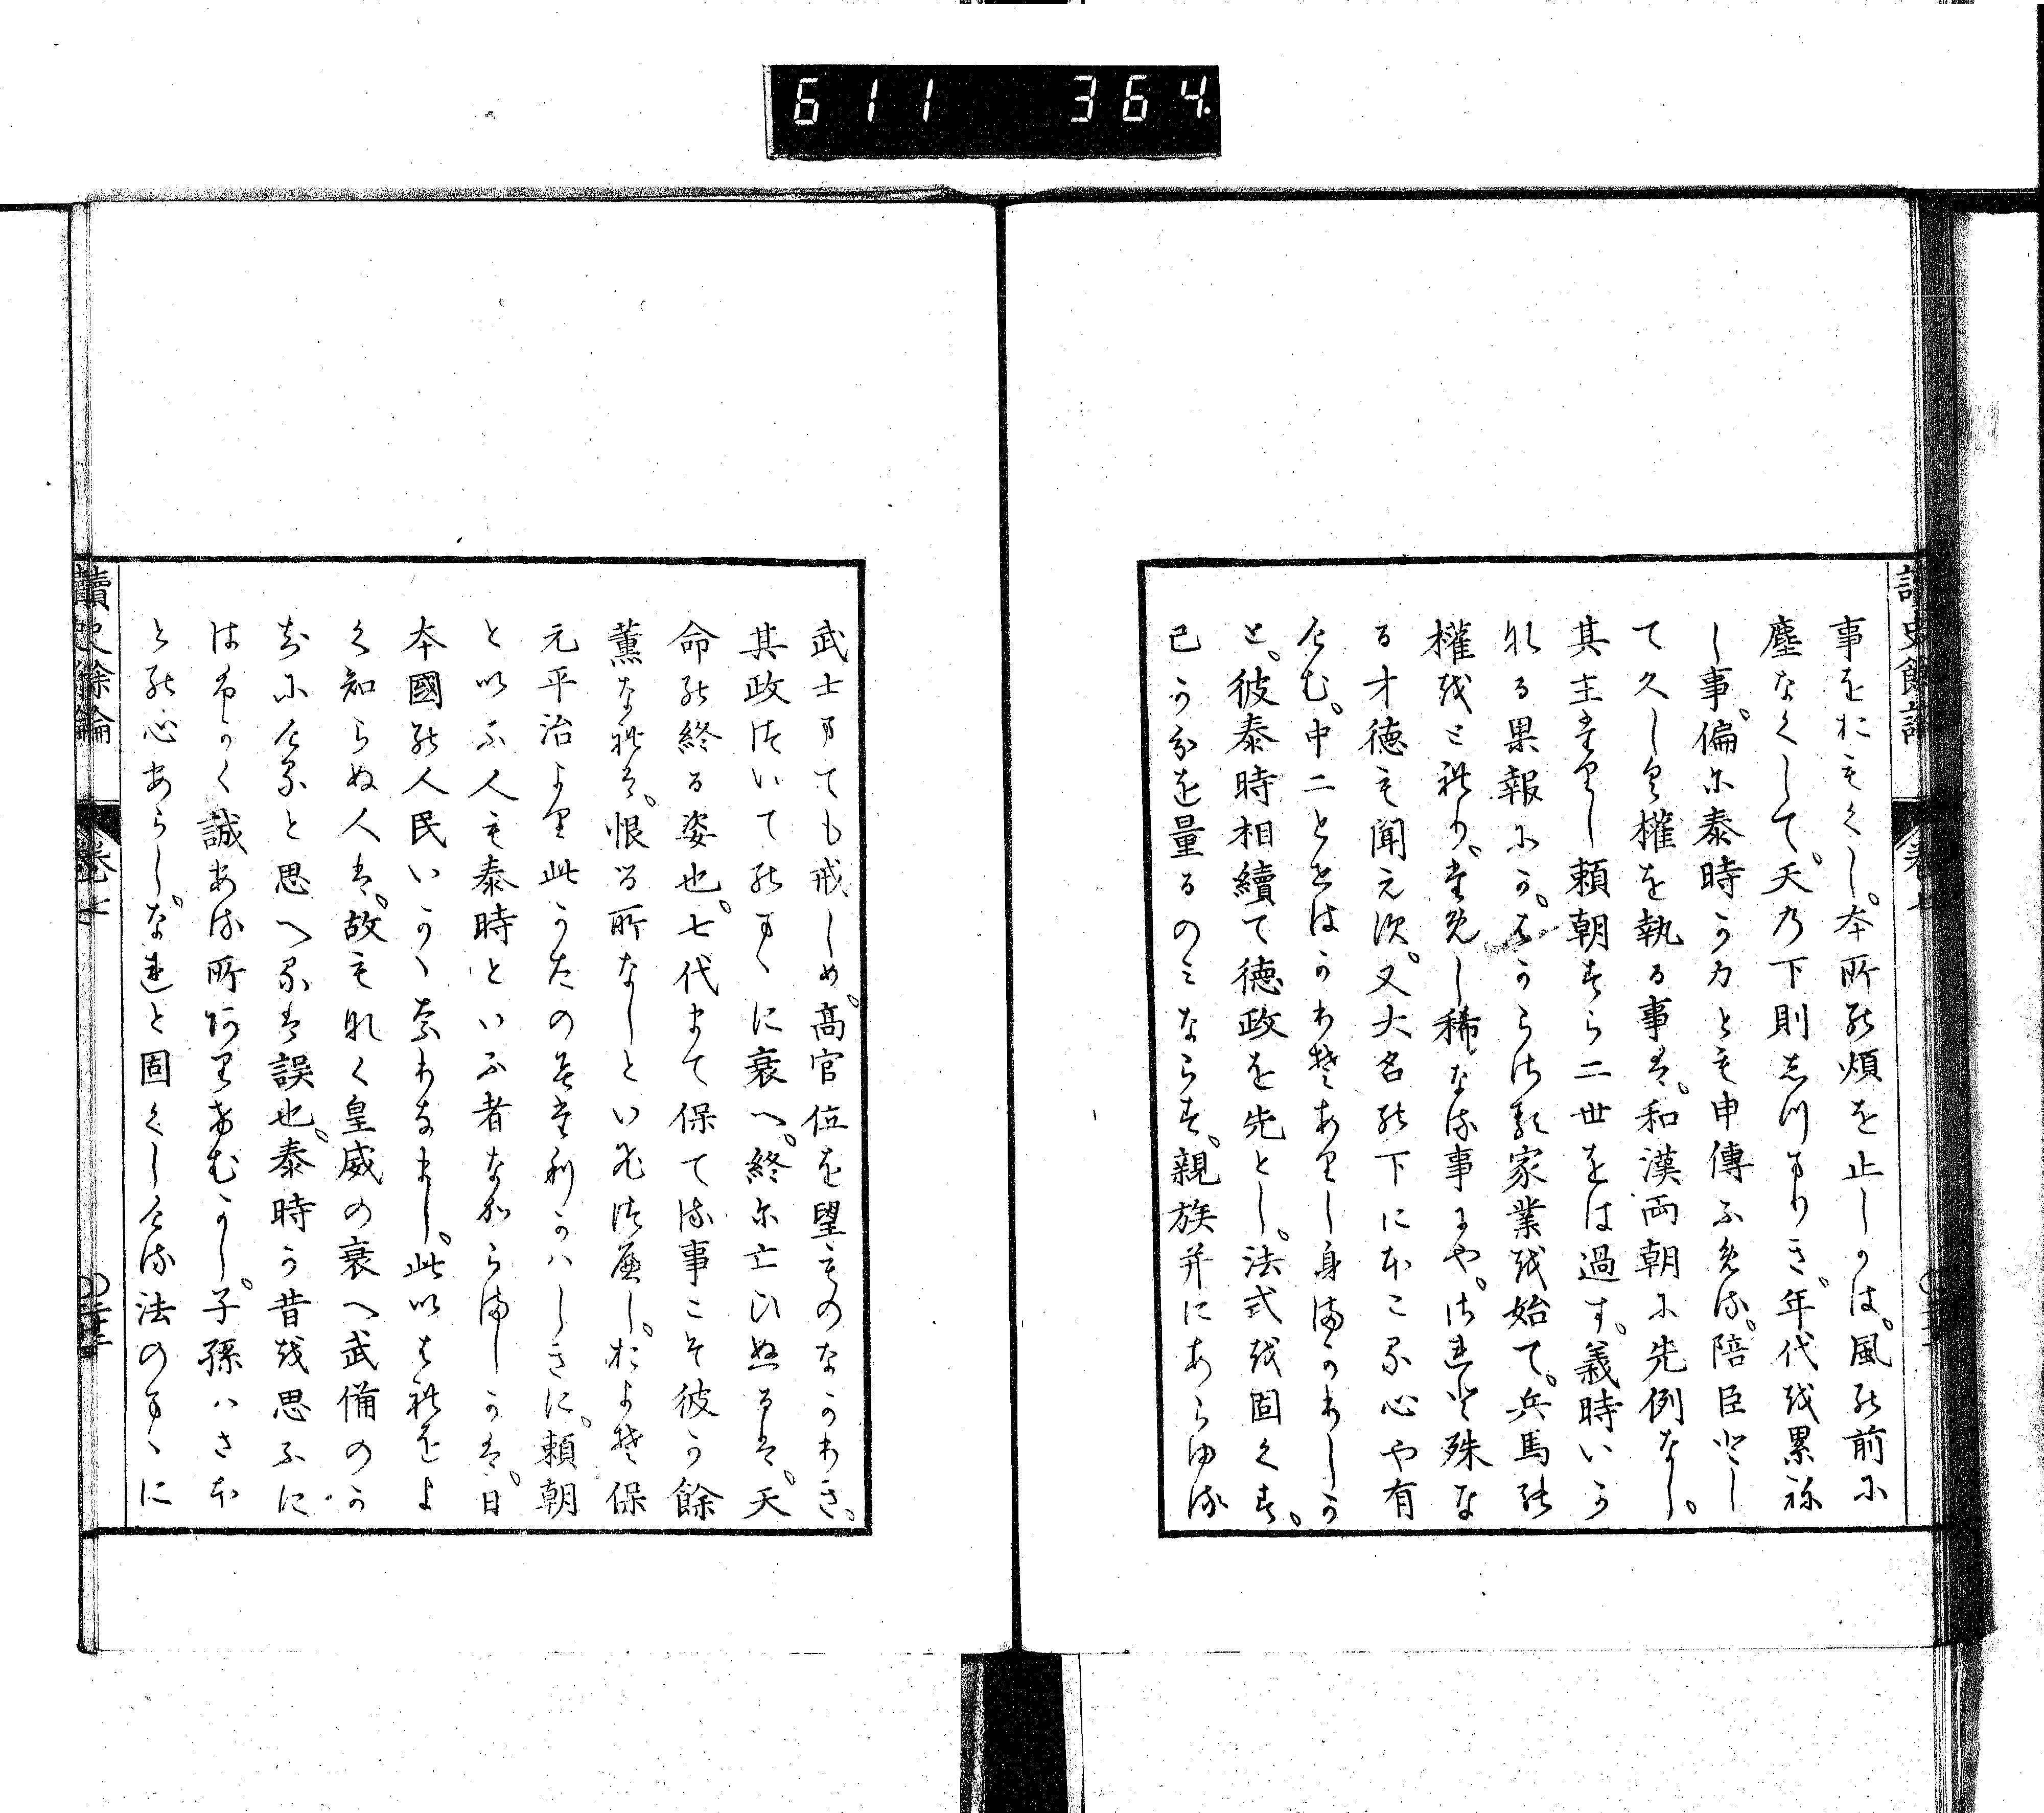 611 364.
讀史餘論
卷七
事をおもくし。本所の煩を止しかは。風の前に
塵なくして。天の下則しつまりき。年代を累ね
し事。偏に泰時か力とそ申傳ふめる。陪臣とし
て久しく權を執る事は。和漢兩朝に先例なし。
其主たりし頼朝すら二世をは過す。義時いか
なる果報にか。はからさる家業を始て。兵馬の
權をとれり。ためし稀なる事にや。されと殊な
る才徳も聞えす。又大名の下にほこる心や有
けむ。中二とせはかりそありし身まかりしか
と。彼泰時相續て徳政を先とし。法式を固くす。
己か分を量るのみならす。親族并にあらゆる
武士まても戒しめ。高官位を望ものなかりき。
其政次いてのまゝに衰へ。終に亡ひぬるは。天
命の終る姿也。七代まて保てる事こそ彼か餘
薫なれは。恨る所なしといひつへし。およそ保
元平治より此かたのみたりかはしきに。頼朝
と以ふ人も泰時といふ者なからましかは。日
本國の人民いかゝなりなまし。此いはれをよ
く知らぬ人は。故もなく皇威の衰へ武備のか
ちにけると思へるは誤也。泰時か昔を思ふに
はよく誠ある所ありけむかし。子孫ハさほ
との心あらし。なれと固くしける法のまゝに
讀史餘論
卷七